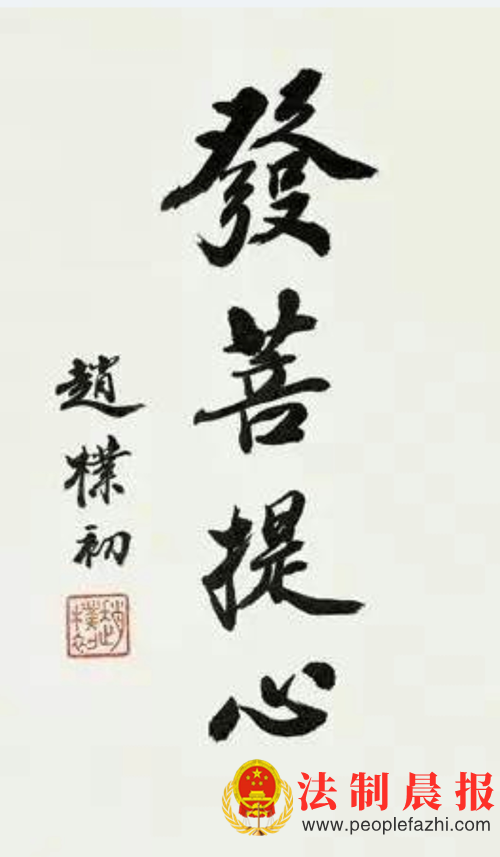 發菩提心
趙樸初
趙樸初
法制晨报
www.peoplefazhi.com